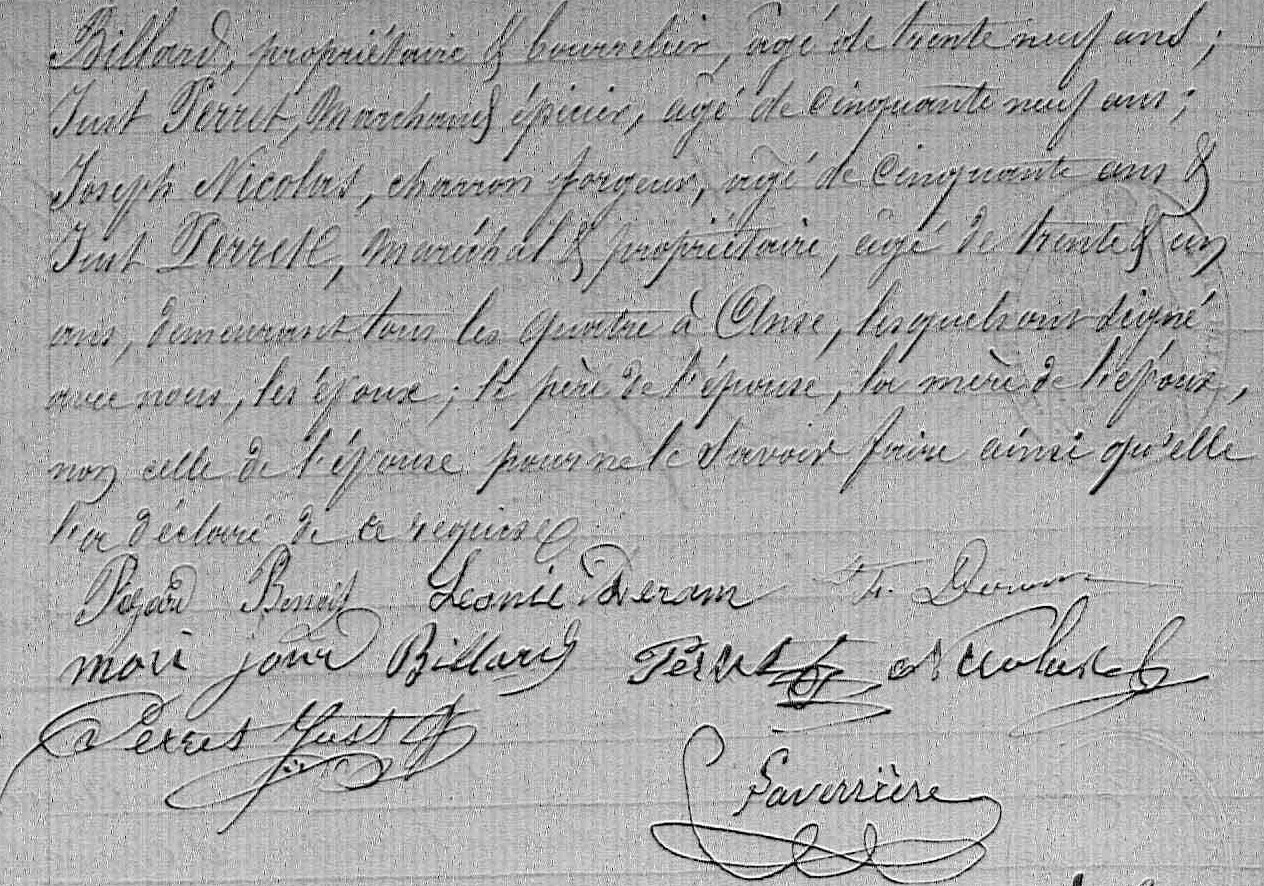 Billard, propriétaire & bourrelier, âgé de trente neuf ans ;
Just Perret, Marchand épicier, âgé de cinquante neuf ans ;
Joseph Nicolas, charron forgeur, âgé de cinquante ans &
Just Perret, maréchal & propriétaire, âgé de trente & un
ans, demeurant tous les quatre à Anse, lesquels ont signé
avec nous, les époux ; le père de l'épouse, la mère de l'époux,
non celle de l'épouse pour ne le savoir faire ainsi qu'elle
l'a déclaré de ce requise
Benoit Leonie Deram
mari jour Billard Perret Nicolas
Perret Just
Laverrière